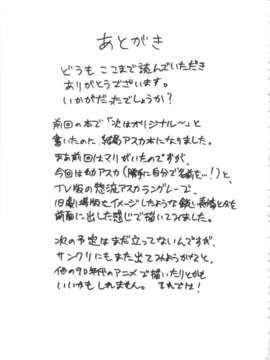 あとがき
どうも ここまで読んでいただき
ありがとうございます。
いかがだったでしょうか?
前回の本で「次はオリジナル〜」と
書いたのに 結局アスカ本になりました。
まあ前回はマリがいたのですが、
今回は アスカ(勝手に自分で名前を…!)と、
TV版の惣流アスカラングレーで、
旧劇場版をイメージしたような 長
前面に出した感じで描いてみました。
次の予定はまだ立ってないんですが、
サンクリにもまた出てみようかなと、
他の90年代のアニメで描いたりとかも
いいかもしれません。 それでは!